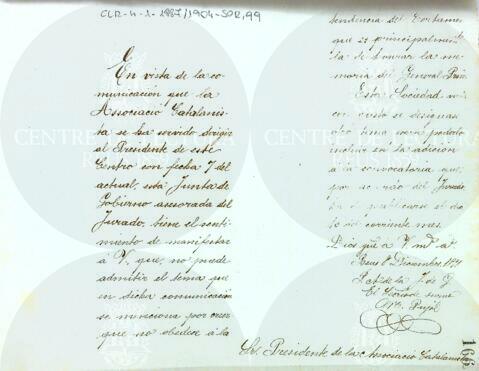 CLR-4-1-1887/1904-SOR,99
En vista de la co-
municación que la
Associació Catalanis-
ta se ha servido dirigir
al Presidente de este
Centro con fecha 7 del
actual, esta Junta de
Gobierno asesorada del
Jurado, tiene el senti-
miento de manifestar
á V. que no puede
admitir el tema que
en dicha comunicación
se menciona por creer
que no obedece á la
tendencia del Certamen
que es principalmente
la de honrar la me-
moria del General Prim
Esta Sociedad
en caso se
otro tema
en la adición
á la convocatoria que,
por del Jurado
ha de publicarse el dia
del corriente mes.
Dios gue á V. ms. as.
Reus Diciembre
P. A. de la J. de G.
El Secretario
Pujol
Sr. Presidente de la Associació Catalanista
166
CENTRE DE LECTURA
REUS 1859